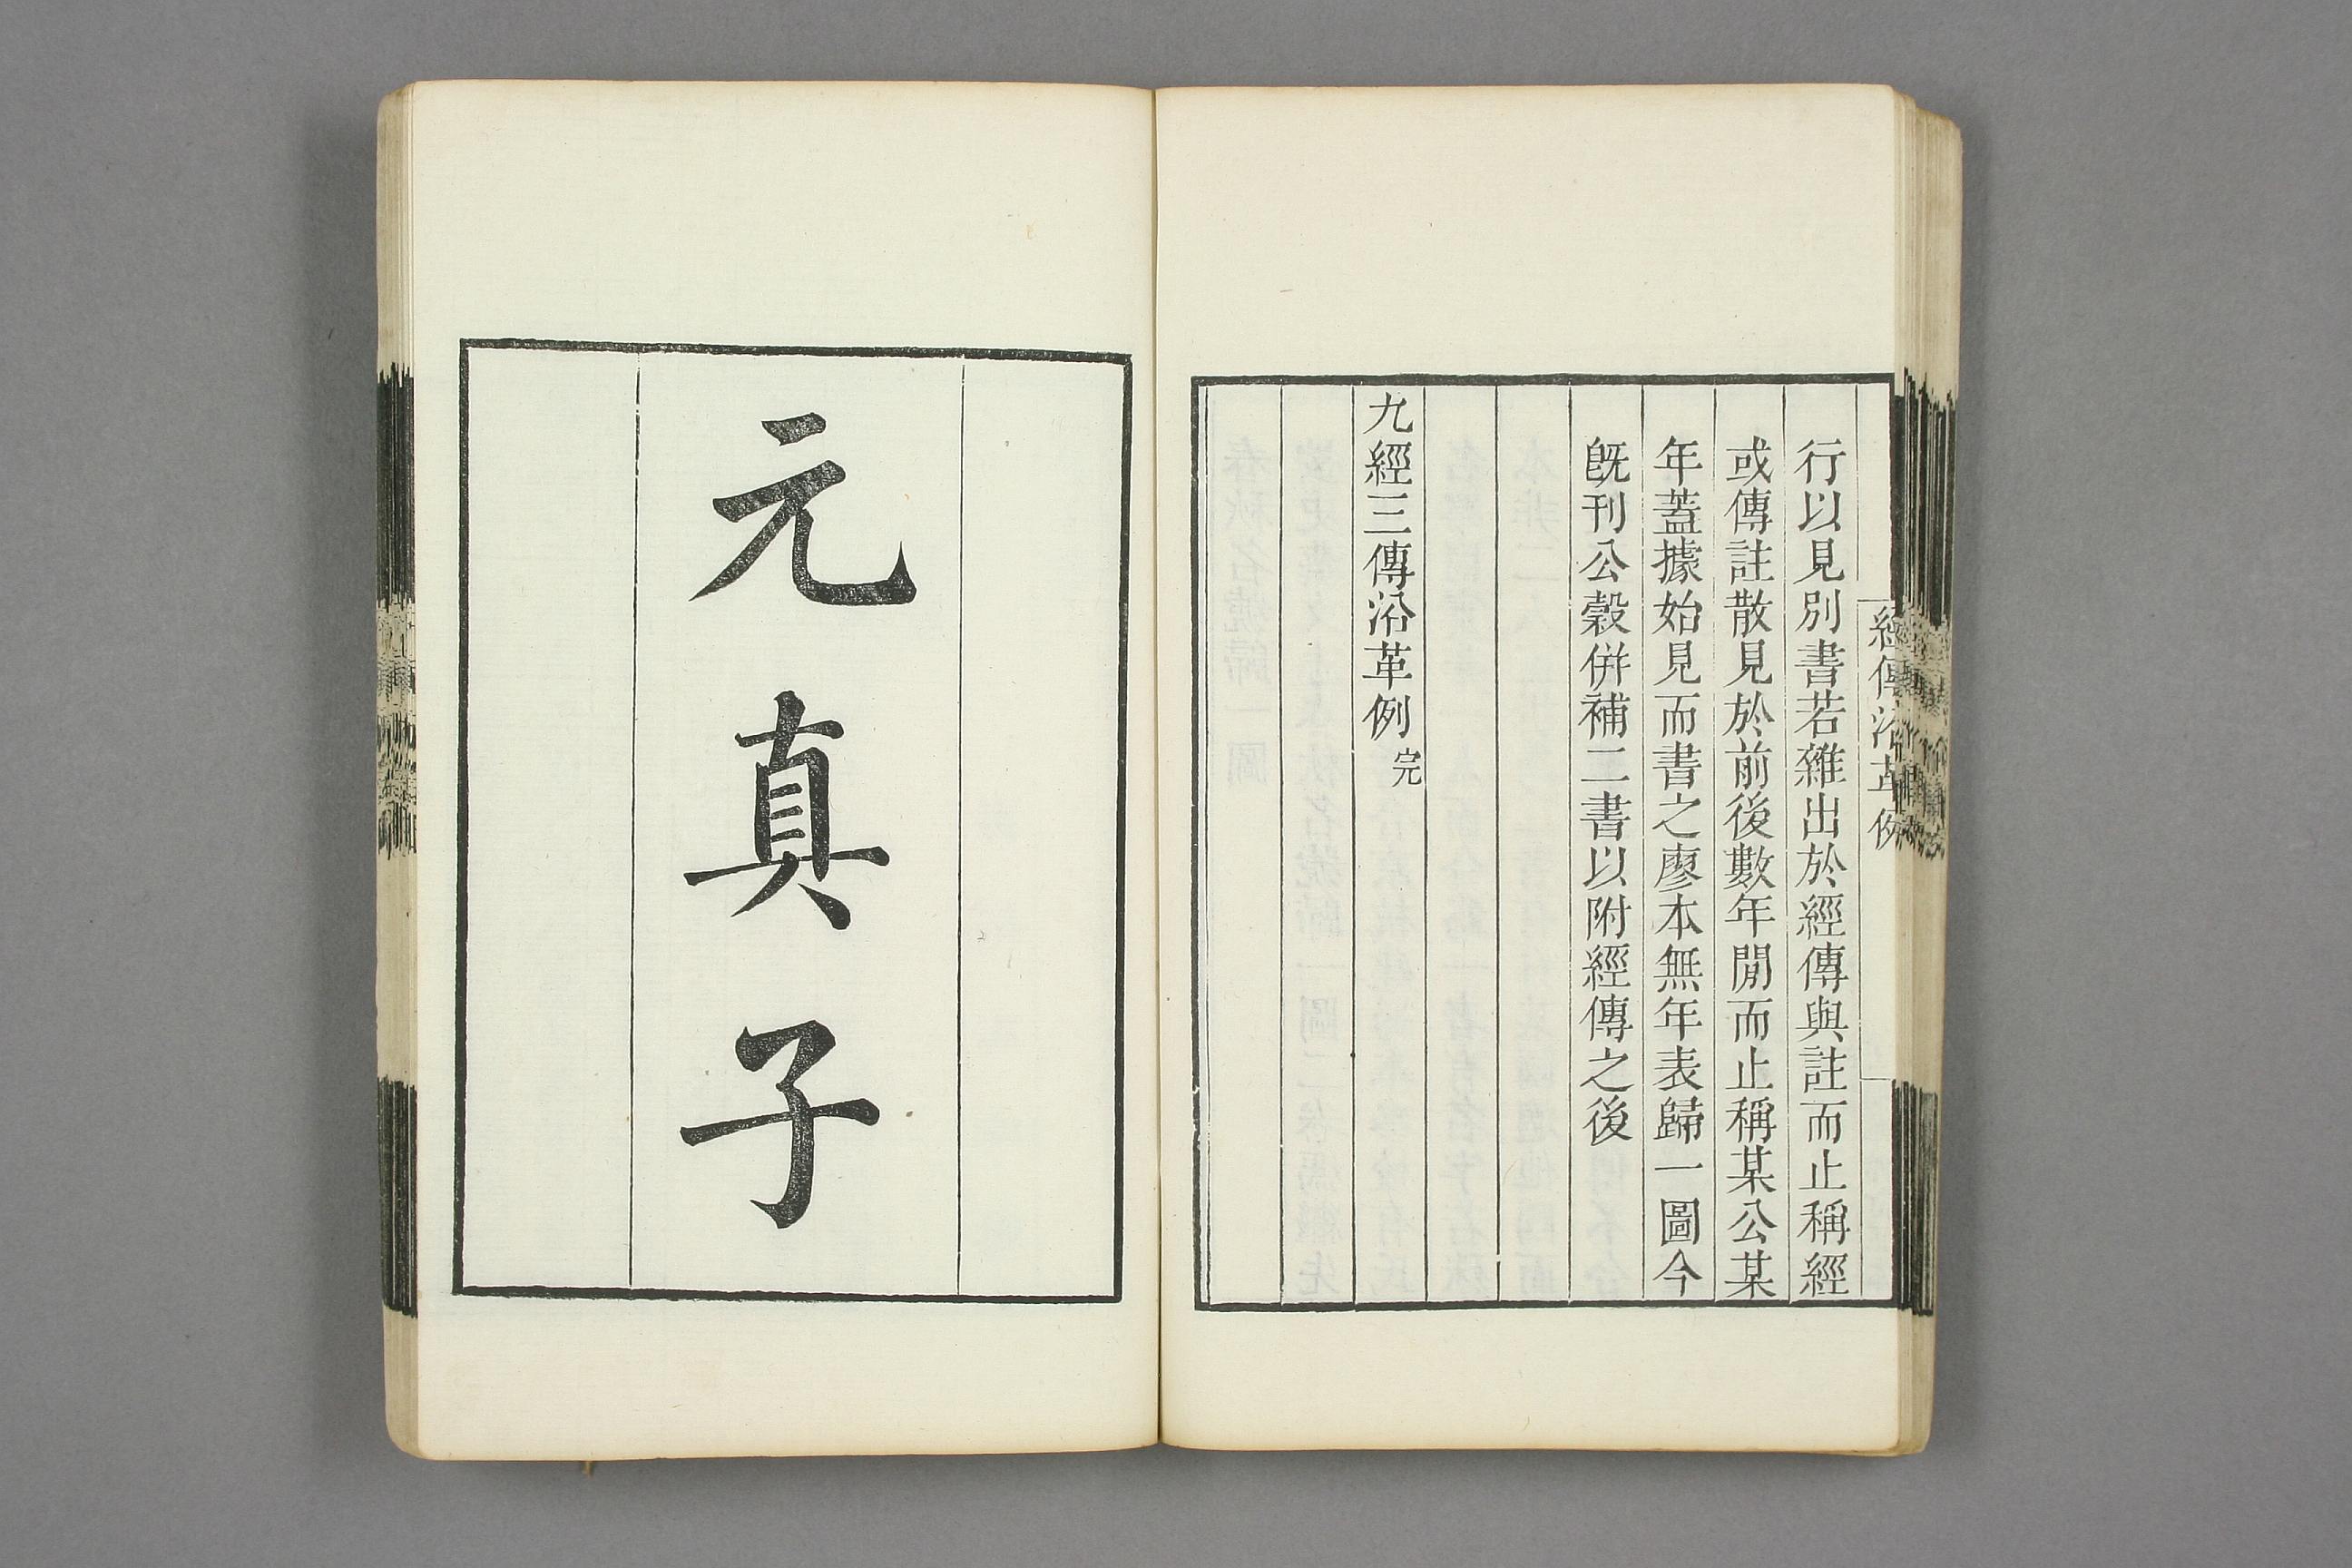 經傳沿革例
行以見別書若雜出於經傳與註而止稱經
或傳註散見於前後數年閒而止稱某公某
年蓋據始見而書之廖本無年表歸一圖今
旣刊公穀併補二書以附經傳之後
九經三傳沿革例完
元真子